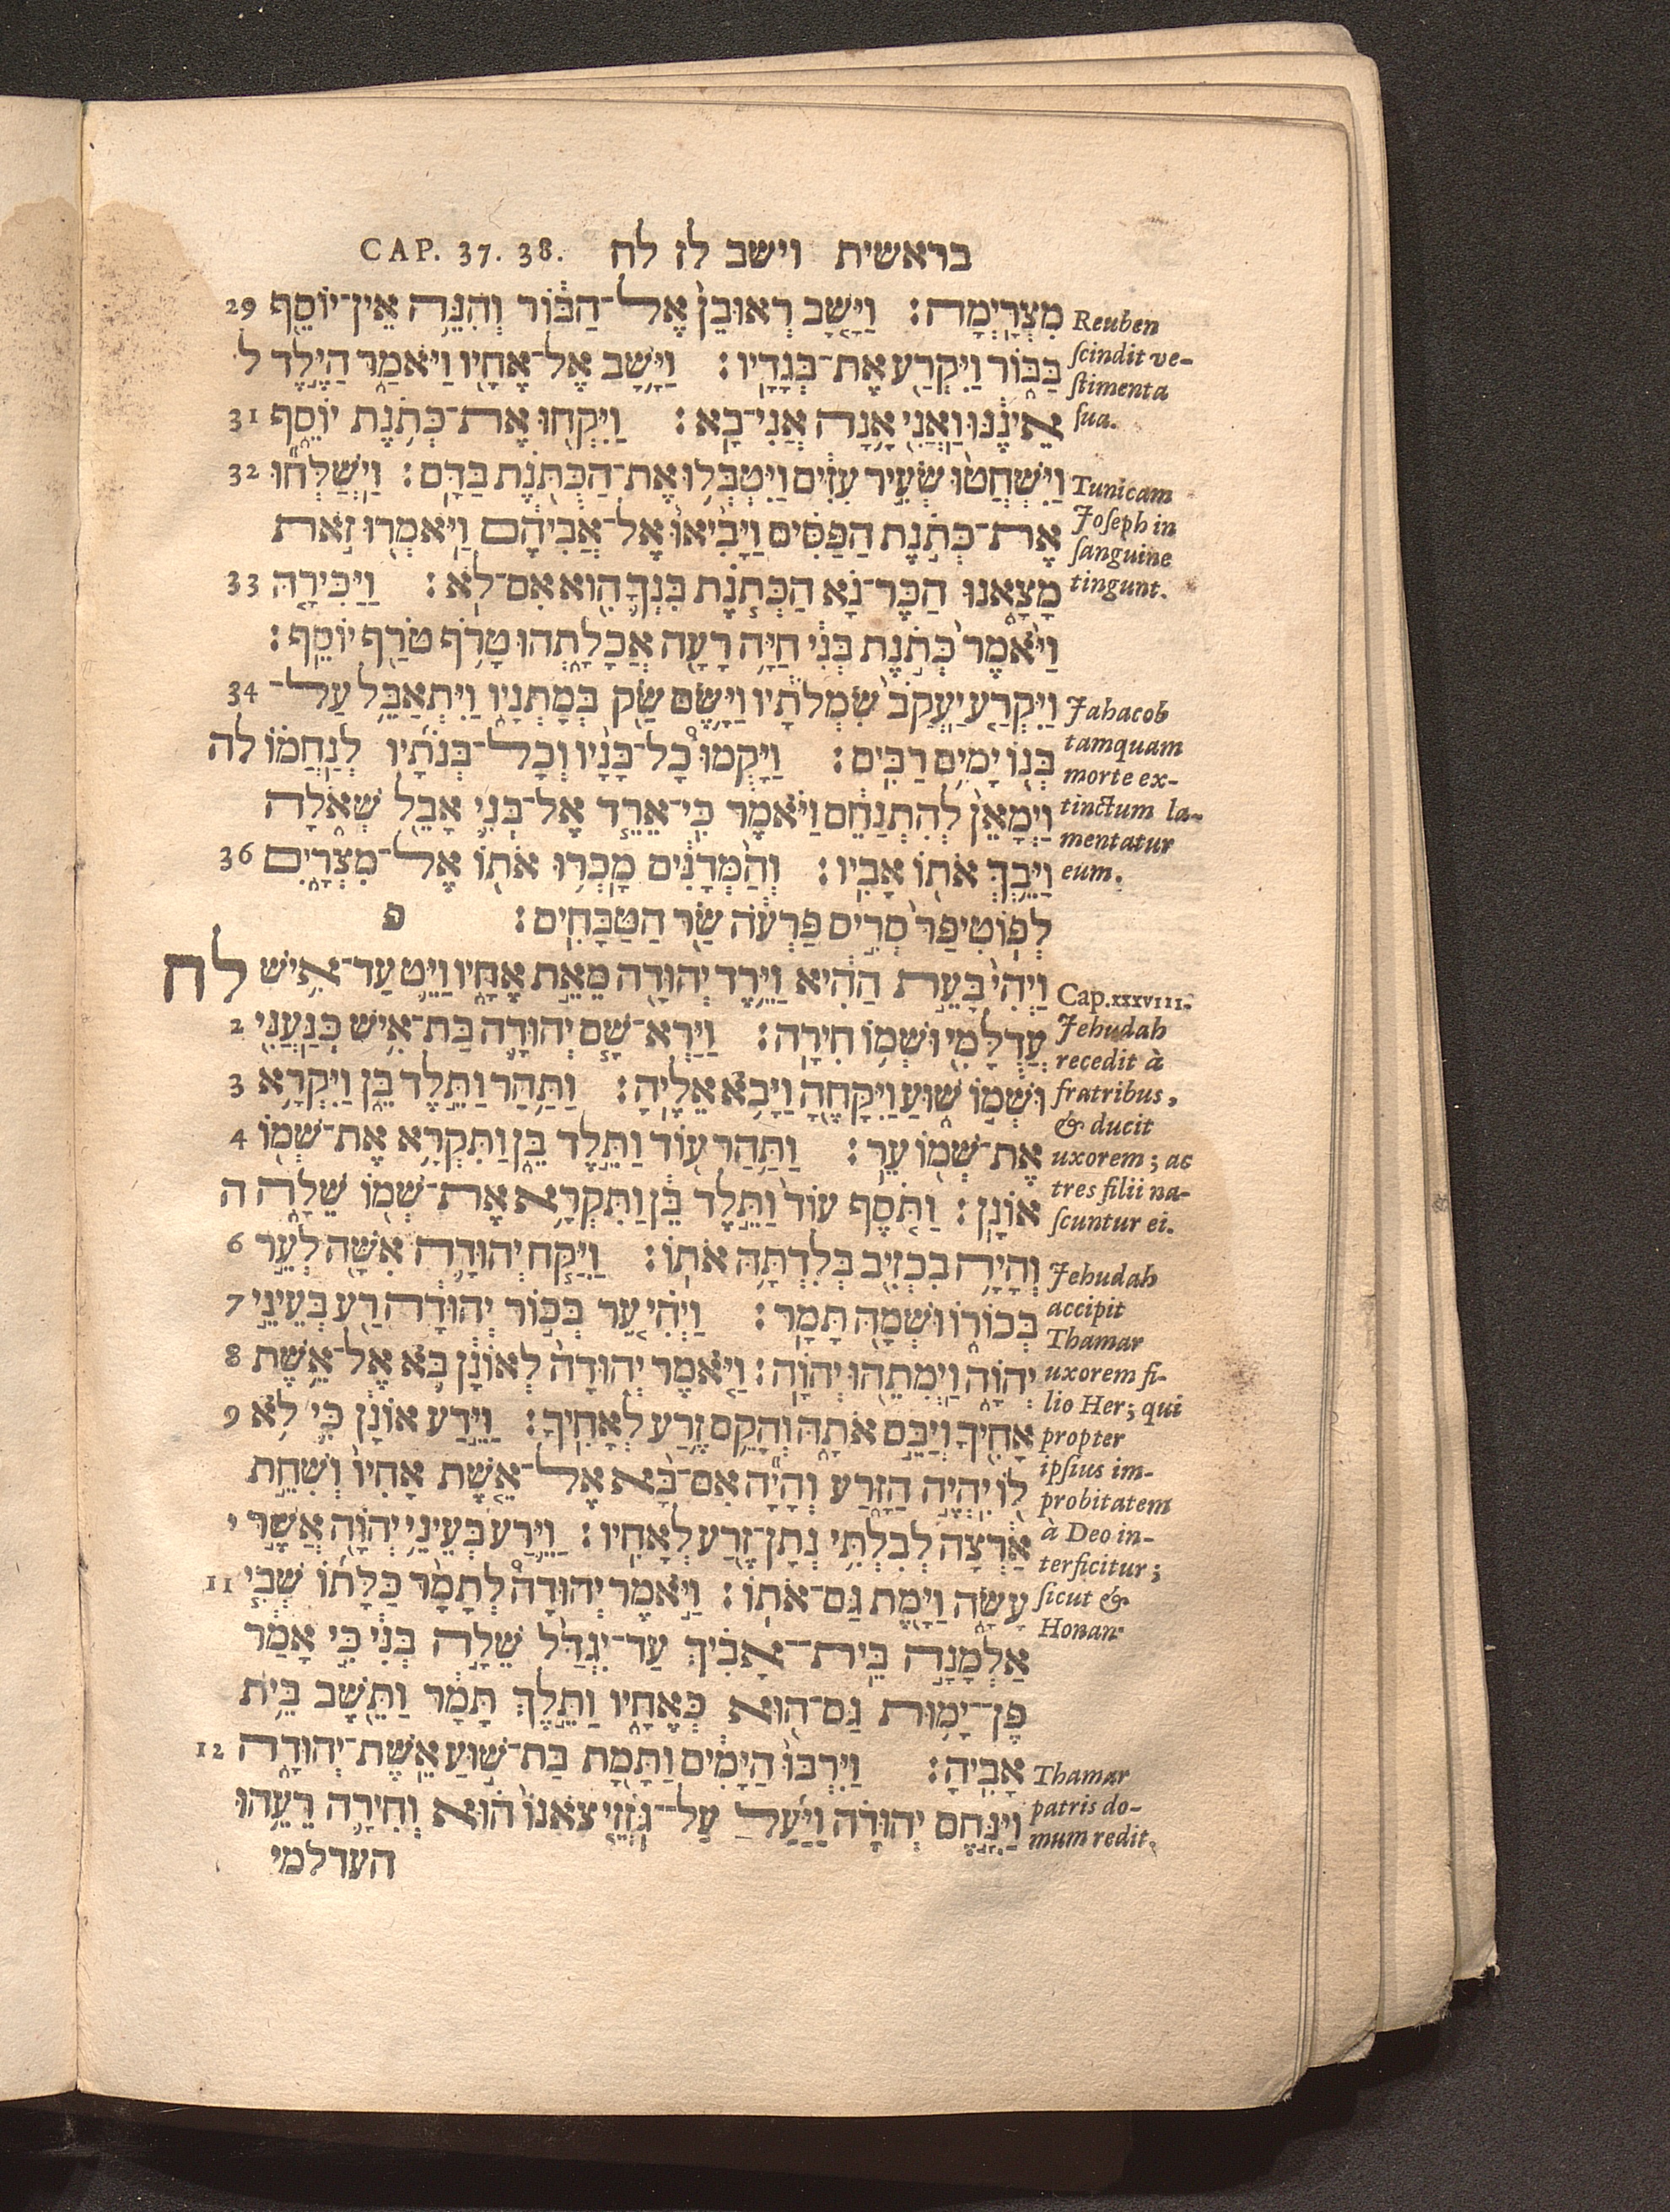 בראשית וישב לז לח CAP. 37. 38.
מִצְרָיְמָה׃ וַיָּשָׁב רְאוּבֵן אֶל־הַבּוֹר וְהִנֵּה אֵין־יוֹסֵף 29
בַּבּוֹר וַיִּקְרַע אֶת־בְּגָדָיו׃ וַיָּשָׁב אֶל־אֶחָיו וַיֹּאמַר הַיֶּלֶד ל
אֵינֶנּוּ וַאֲנִי אָנָה אֲנִי־בָא׃ וַיִּקְחוּ אֶת־כְּתֹנֶת יוֹסֵף 31
וַיִּשְׁחֲטוּ שְׂעִיר עִזִּים וַיִּטְבְּלוּ אֶת־הַכְּתֹנֶת בַּדָּם׃ וַיְשַׁלְּחוּ 32
אֶת־כְּתֹנֶת הַפַּסִּים וַיָּבִיאוּ אֶל־אֲבִיהֶם וַיֹּאמְרוּ זֹאת
מָצָאנוּ הַכֶּר־נָא הַכְּתֹנֶת בִּנְךָ הִוא אִם־לֹא׃ וַיַּכִּירָהּ 33
וַיֹּאמֶר כְּתֹנֶת בְּנִי חַיָּה רָעָה אֲכָלָתְהוּ טָרֹף טֹרַף יוֹסֵף׃
וַיִּקְרַע יַעֲקֹב שִׂמְלֹתָיו וַיָּשֶׂם שַׂק בְּמָתְנָיו וַיִּתְאַבֵּל עַל־ 34
בְּנוֹ יָמִים רַבִּים׃ וַיָּקֻמוּ כָל־בָּנָיו וְכָל־בְּנֹתָיו לְנַחֲמוֹ לה
וַיְמָאֵן לְהִתְנַחֵם וַיֹּאמֶר כִּי־אֵרֵד אֶל־בְּנִי אָבֵל שְׁאֹלָה
וַיֵּבְךְּ אֹתוֹ אָבִיו׃ וְהַמְּדָנִים מָכְרוּ אֹתוֹ אֶל־מִצְרָיִם 36
לְפוֹטִיפַר סְרִיס פַּרְעֹה שַׂר הַטַּבָּחִים׃ פ
וַיְהִי בָּעֵת הַהִיא וַיֵּרֶד יְהוּדָה מֵאֵת אֶחָיו וַיֵּט עַד־אִישׁ לח
עֲדֻלָּמִי וּשְׁמוֹ חִירָה׃ וַיַּרְא־שָׁם יְהוּדָה בַּת־אִישׁ כְּנַעֲנִי 2
וּשְׁמוֹ שׁוּעַ וַיִּקָּחֶהָ וַיָּבֹא אֵלֶיהָ׃ וַתַּהַר וַתֵּלֶד בֵּן וַיִּקְרָא 3
אֶת־שְׁמוֹ עֵר׃ וַתַּהַר עוֹד וַתֵּלֶד בֵּן וַתִּקְרָא אֶת־שְׁמוֹ 4
אוֹנָן׃ וַתֹּסֶף עוֹד וַתֵּלֶד בֵּן וַתִּקְרָא אֶת־שְׁמוֹ שֵׁלָה ה
וְהָיָה בִכְזִיב בְּלִדְתָּהּ אֹתוֹ׃ וַיִּקַּח יְהוּדָה אִשָּׁה לְעֵר 6
בְּכוֹרוֹ וּשְׁמָהּ תָּמָר׃ וַיְהִי עֵר בְּכוֹר יְהוּדָה רַע בְּעֵינֵי 7
יְהוָֹה וַיְמִתֵהוּ יְהוָֹה׃ וַיֹּאמֶר יְהוּדָה לְאוֹנָן בֹּא אֶל־אֵשֶׁת 8
אָחִיךָ וְיַבֵּם אֹתָהּ וְהָקֵם זֶרַע לְאָחִיךָ׃ וַיֵּדַע אוֹנָן כִּי לֹא 9
לוֹ יִהְיֶה הַזָּרַע וְהָיָה אִם־בָּא אֶל־אֵשֶׁת אָחִיו וְשִׁחֵת
אַרְצָה לְבִלְתִּי נְתָן־זֶרַע לְאָחִיו׃ וַיֵּרַע בְּעֵינֵי יְהוָֹה אֲשֶׁר י
עָשָׂה וַיָּמֶת גַּם־אֹתוֹ׃ וַיֹּאמֶר יְהוּדָה לְתָמָר כַּלָּתוֹ שְׁבִי 11
אַלְמָנָה בֵית־אָבִיךְ עַד־יִגְדַּל שֵׁלָה בְנִי כִּי אָמַר
פֶּן־יָמוּת גַּם־הוּא כְּאֶחָיו וַתֵּלֶךְ תָּמָר וַתֵּשֶׁב בֵּית
אָבִיהָ׃ וַיִּרְבּוּ הַיָּמִים וַתָּמָת בַּת־שׁוּעַ אֵשֶׁת־יְהוּדָה 12
וַיִּנָּחֶם יְהוּדָה וַיַּעַל עַל־גֹּזְזֵי צֹאנוֹ הוּא וְחִירָה רֵעֵהוּ
העדלמי
Reuben
scindit ve-
stimenta
sua.
Tunicam
Joseph in
sanguine
tingunt.
Jahacob
tamquam
morte ex-
tinctum la-
mentatur
eum.
Cap. XXXVIII.
Jehudah
recedit à
fratribus,
& ducit
uxorem; ac
tres filii na-
scuntur ei.
Jehudah
accipit
Thamar
uxorem fi-
lio Her; qui
propter
ipsius im-
probitatem
à Deo in-
terficitur;
sicut &
Honan
Thamar
patris do-
mum redit.